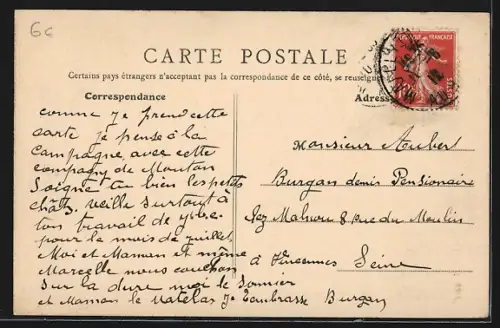 6€
CARTE POSTALE
Certains pays étrangers n'acceptent pas la correspondance de ce côté, se renseigner
Correspondance
Adresse
comme je prend cette
carte je pense à la
campagne avec cette
compagny de Mouton
Soigne tu bien les petits
chats. veille surtout à
ton travail de
pour le mois de juillet
Moi et Maman et même
Marcelle nous couchon
sur la dure moi le Sommier
et Maman le Matelas Je t'embrasse Burgan
Monsieur Aubert
Burgan demi Pensionaire
chez Malnou 8 rue du Moulin
à Vincennes
Seine